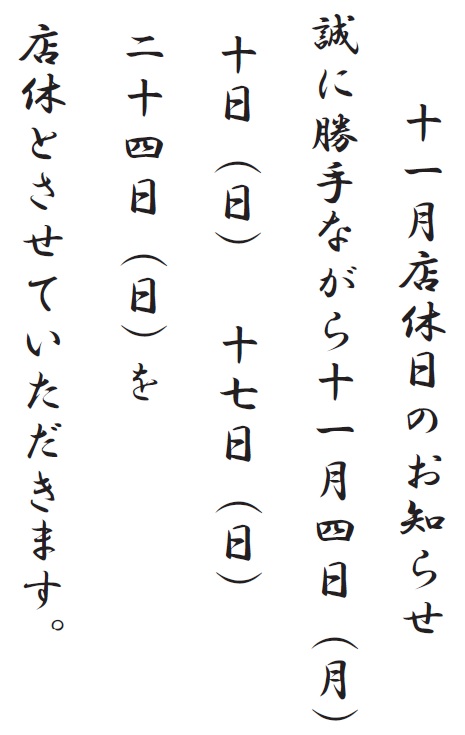 十一月店休日のお知らせ
誠に勝手ながら十一月四日（月）
十日（日）　十七日（日）
二十四日（日）を
店休とさせていただきます。